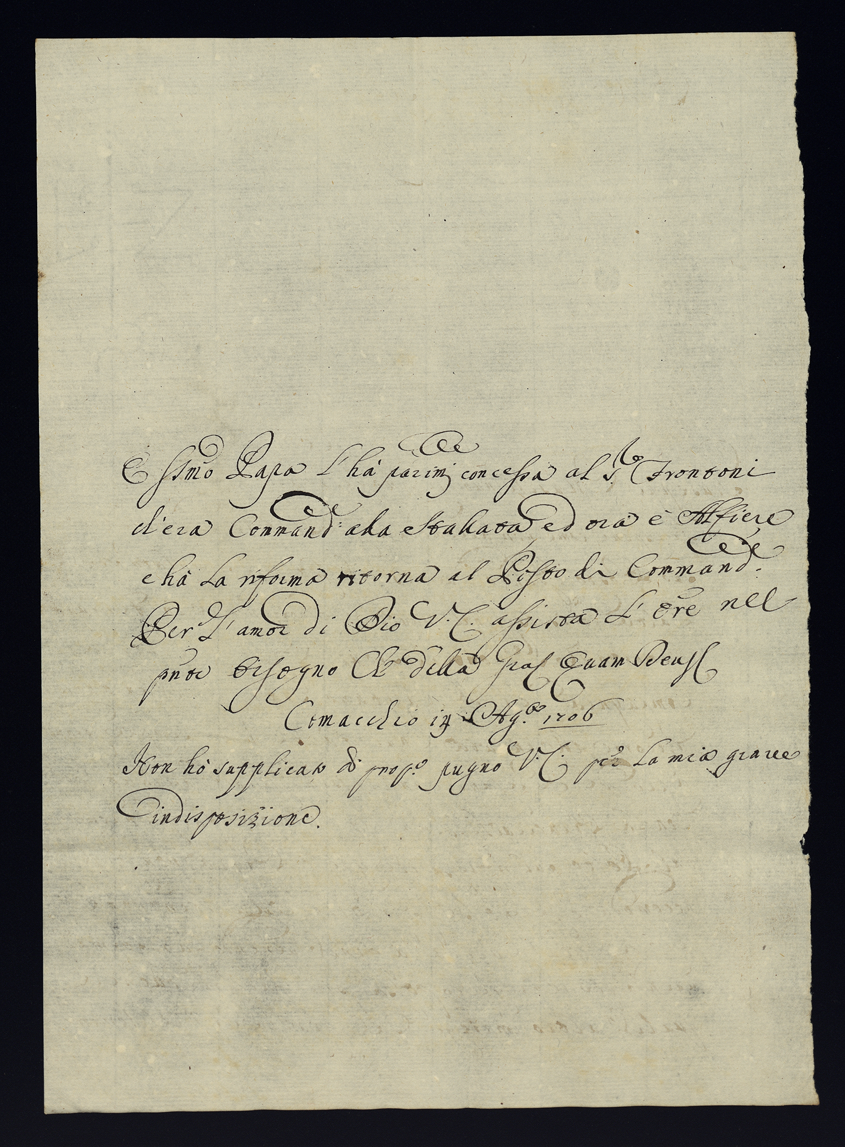 E ssmo Papa l'hà parimi.te concessa al S.r Frontoni
ch'era Command.te alla Stallata ed ora è Alfiere
e hà la riforma ritorna al Posto di Command.te
Per l'amor di Dio V. E. assista l'Ore nel
pnte bisogno Che della Graz Quam Deus
Comacchio 14 Ag.to 1706
Non hò supplicato di prop.o pugno V. E. per la mia grave
indisposizione.